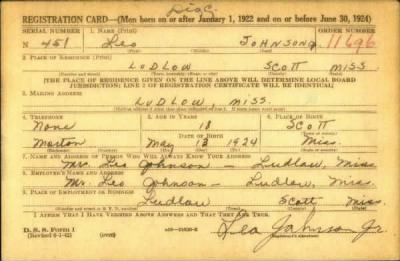 Disc.
REGISTRATION CARD—(Men born on or after January 1, 1922 and on or before June 30, 1924)
SERIAL NUMBER 1. NAME (Print) ORDER NUMBER
N 451 Leo JOHNSON JR 11696
(First) (Middle) (Last)
2. PLACE OF RESIDENCE (Print)
LUDLOW SCOTT MISS
[THE PLACE OF RESIDENCE GIVEN ON THE LINE ABOVE WILL DETERMINE LOCAL BOARD
JURISDICTION; LINE 2 OF REGISTRATION CERTIFICATE WILL BE IDENTICAL]
3. MAILING ADDRESS
LUDLOW MISS.
4. TELEPHONE 5. AGE IN YEARS 6. PLACE OF BIRTH
None 18 SCOTT
DATE OF BIRTH
Morton May 13 1924 Miss.
7. NAME AND ADDRESS OF PERSON WHO WILL ALWAYS KNOW YOUR ADDRESS
Mr. Leo Johnson — Ludlow, Miss
8. EMPLOYER'S NAME AND ADDRESS
Mr. Leo Johnson — Ludlow, Miss.
9. PLACE OF EMPLOYMENT OR BUSINESS
Ludlow Scott Miss.
I AFFIRM THAT I HAVE VERIFIED ABOVE ANSWERS AND THAT THEY ARE TRUE.
D. S. S. Form 1
(Revised 6-1-42) (over) Leo Johnson Jr.